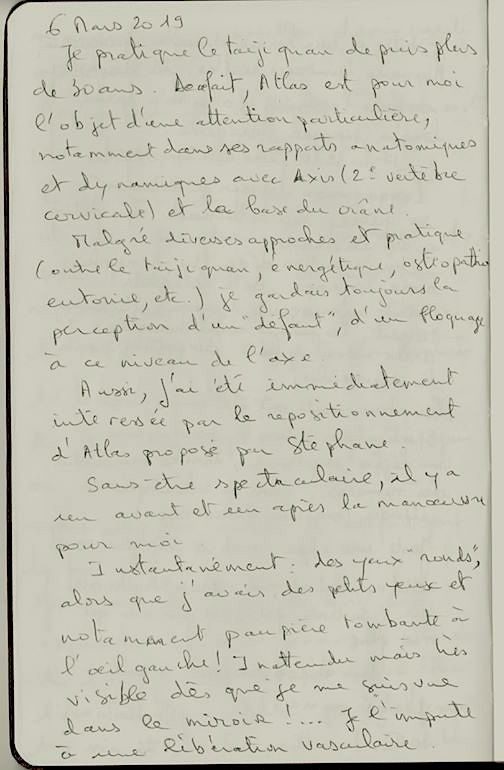 6 Mars 2019
Je pratique le taiji quan depuis plus
de 30 ans. De fait, Atlas est pour moi
l'objet d'une attention particulière,
notamment dans ses rapports anatomiques
et dynamiques avec Axis (2e vertèbre
cervicale) et la base du crâne.
Malgré diverses approches et pratique
(outre le taiji quan, énergétique, ostéopathie
eutonie, etc.) je gardais toujours la
perception d'un "défaut", d'un blocage
à ce niveau de l'axe.
Aussi, j'ai été immédiatement
intéressée par le repositionnement
d'Atlas proposé par Stéphane.
Sans être spectaculaire, il y a
un avant et un après la manoeuvre
pour moi.
Instantanément : des yeux "ronds",
alors que j'avais des petits yeux et
notamment paupière tombante à
l'œil gauche ! Inattendu mais très
visible dès que je me suis vue
dans le miroir !... Je l'impute
à une libération vasculaire.